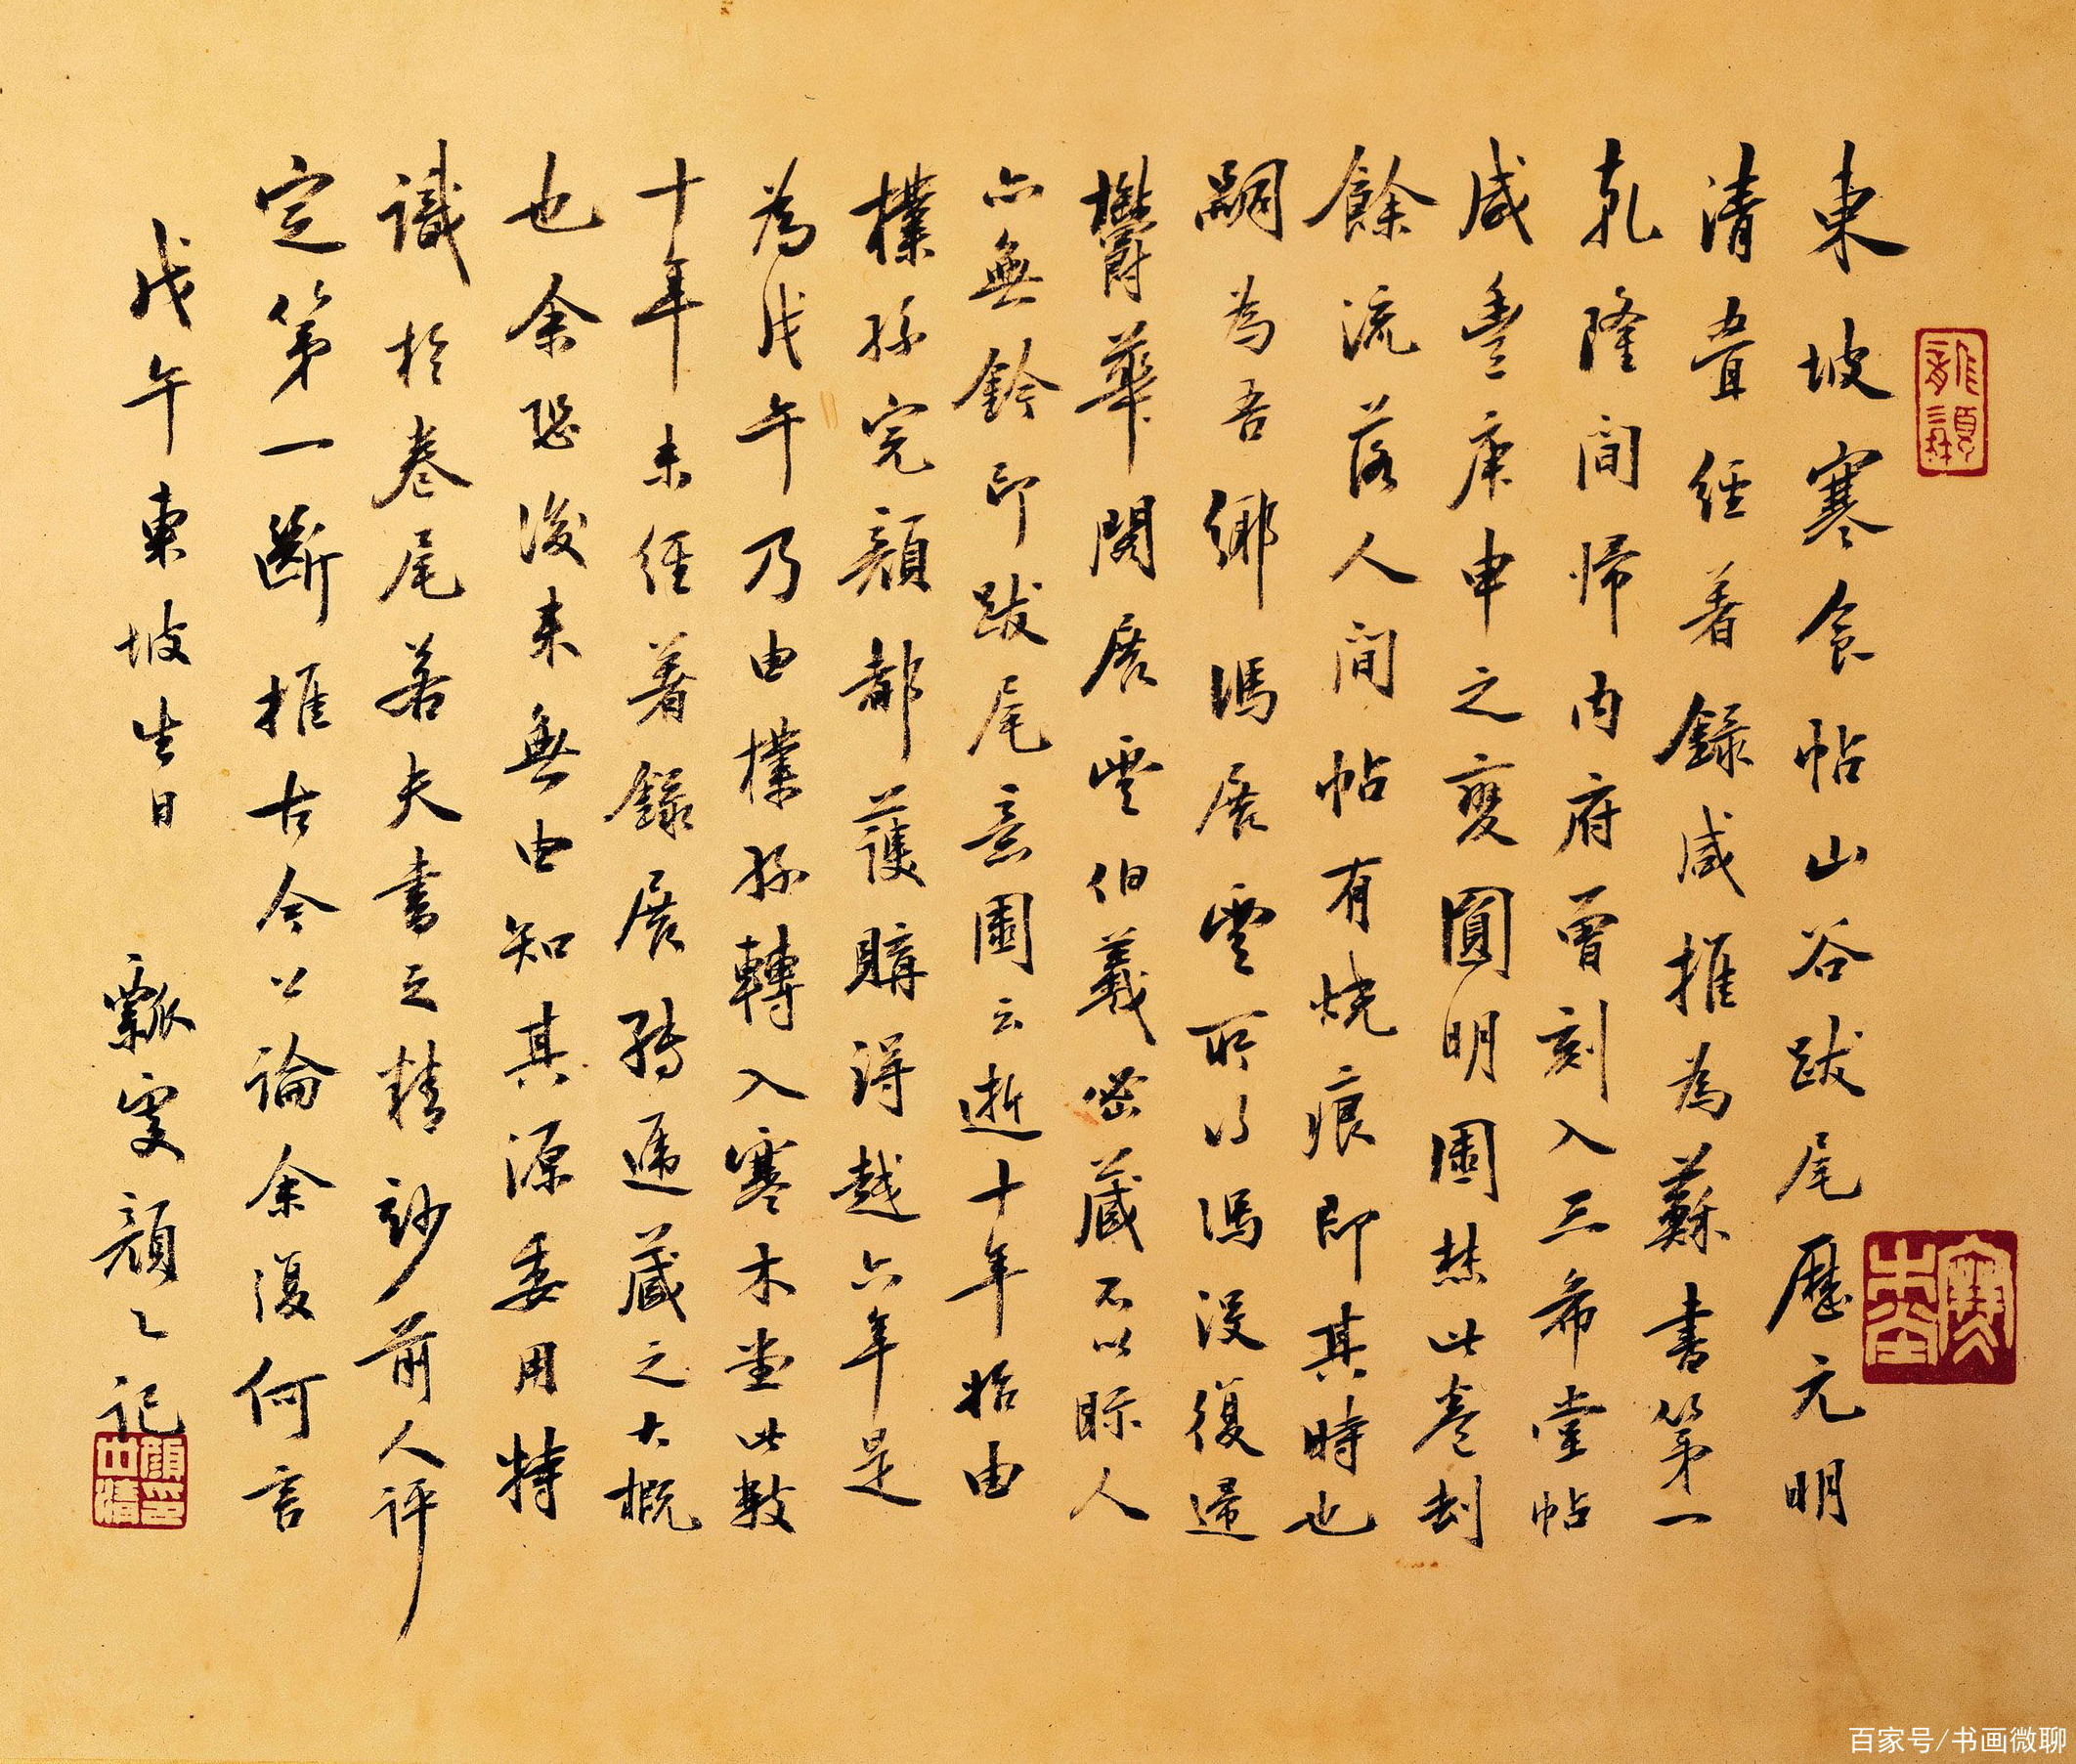 東坡寒食帖山谷跋尾歷元明
清疊經著錄咸推為蘇書第一
乾隆間歸內府曾刻入三希堂帖
咸豐庚申之變圓明園焚此卷刦
餘流落人間帖有燒痕即其時也
嗣為吾鄉馮展雲所得馮沒復歸
欝華閣展雲伯羲密藏不以眎人
亦無鈐印跋尾意園云逝十年始由
樸孫完顏都護購得越六年是
為戊午乃由樸孫轉入寒木堂此數
十年未經著錄展轉遞藏之大概
也余恐後來無由知其源委用特
識於卷尾若夫書之精妙前人評
定第一斷推古今公論余復何言
戊午東坡生日 瓢叟顏〻記
寒木堂
顏世清印
百家号/书画微聊